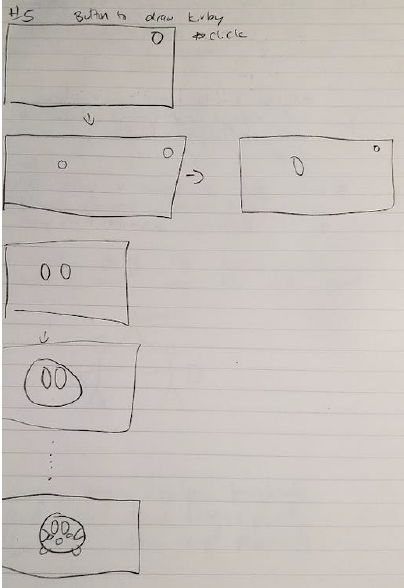 #5 Button to draw kirby
click